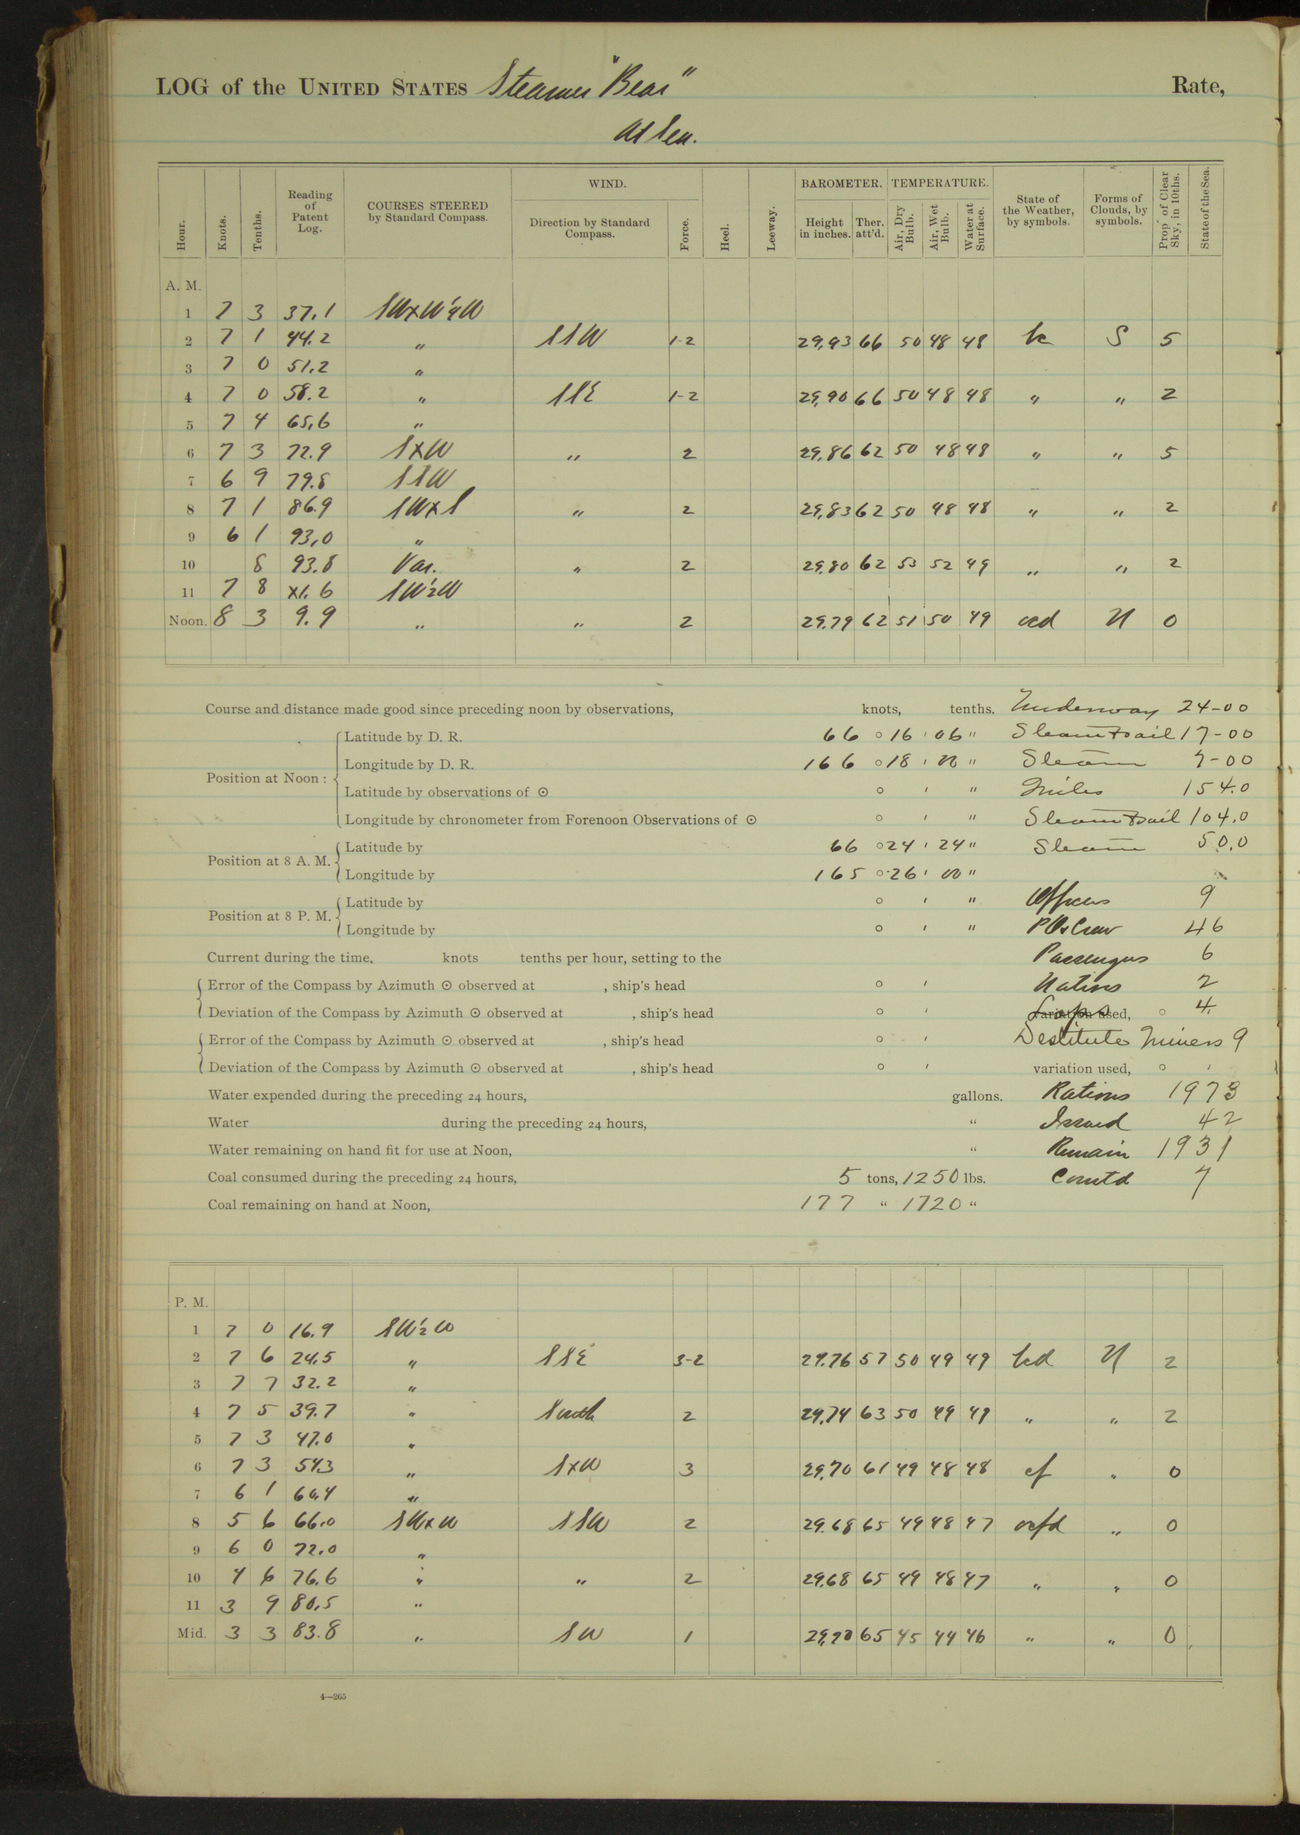 LOG of the UNITED STATES Steamer "Bear" Rate,
At Sea.
Hour. Knots. Tenths. Reading of Patent Log. COURSES STEERED by Standard Compass. WIND. Direction by Standard Compass. Force. Heel. Leeway. BAROMETER. Height in inches. Ther. att'd. TEMPERATURE. Air, Dry Bulb. Air, Wet Bulb. Water at Surface. State of the Weather, by symbols. Forms of Clouds, by symbols. Prop' of Clear Sky, in 10ths. State of the Sea.
A. M.
1 7 3 37.1 SWxW½W
2 7 1 44.2 " SSW 1-2 29.93 66 50 48 48 bc S 5
3 7 0 51.2 "
4 7 0 58.2 " SSE 1-2 29.90 66 50 48 48 " " 2
5 7 4 65.6 "
6 7 3 72.9 SxW " 2 29.86 62 50 48 48 " " 5
7 6 9 79.8 SSW
8 7 1 86.9 SWxS " 2 29.83 62 50 48 48 " " 2
9 6 1 93.0 "
10 8 93.8 Var. " 2 29.80 62 53 52 49 " " 2
11 7 8 x1.6 SW½W
Noon. 8 3 9.9 " " 2 29.79 62 51 50 49 ocd N 0
Course and distance made good since preceding noon by observations, knots, tenths. Underway 24-00
Position at Noon :
Latitude by D. R. 66 ° 16 ' 06 " Steam & sail 17-00
Longitude by D. R. 166 ° 18 ' 00 " Steam 7-00
Latitude by observations of ☉ ° ' " Miles 154.0
Longitude by chronometer from Forenoon Observations of ☉ ° ' " Steam & sail 104.0
Position at 8 A. M.
Latitude by 66 ° 24 ' 24 " Steam 50.0
Longitude by 165 ° 26 ' 00 "
Position at 8 P. M.
Latitude by ° ' " Officers 9
Longitude by ° ' " P.O. & Crew 46
Current during the time, knots tenths per hour, setting to the Passengers 6
Error of the Compass by Azimuth ☉ observed at , ship's head ° ' Natives 2
Deviation of the Compass by Azimuth ☉ observed at , ship's head ° ' variation used, ° Lapps 4
Error of the Compass by Azimuth ☉ observed at , ship's head ° ' Destitute Miners 9
Deviation of the Compass by Azimuth ☉ observed at , ship's head ° ' variation used, ° '
Water expended during the preceding 24 hours, gallons. Rations 1973
Water during the preceding 24 hours, " Issued 42
Water remaining on hand fit for use at Noon, " Remain 1931
Coal consumed during the preceding 24 hours, 5 tons, 1250 lbs. Comtd 7
Coal remaining on hand at Noon, 177 " 1720 "
P. M.
1 7 0 16.9 SW½W
2 7 6 24.5 " SSE 3-2 29.76 57 50 49 49 bcd N 2
3 7 7 32.2 "
4 7 5 39.7 " South 2 29.74 63 50 49 49 " " 2
5 7 3 47.0 "
6 7 3 54.3 " SxW 3 29.70 61 49 48 48 cf " 0
7 6 1 60.4 "
8 5 6 66.0 SWxW SSW 2 29.68 65 49 48 47 ocfd " 0
9 6 0 72.0 "
10 4 6 76.6 " " 2 29.68 65 49 48 47 " " 0
11 3 9 80.5 "
Mid. 3 3 83.8 " SW 1 29.70 65 45 44 46 " " 0
4—265